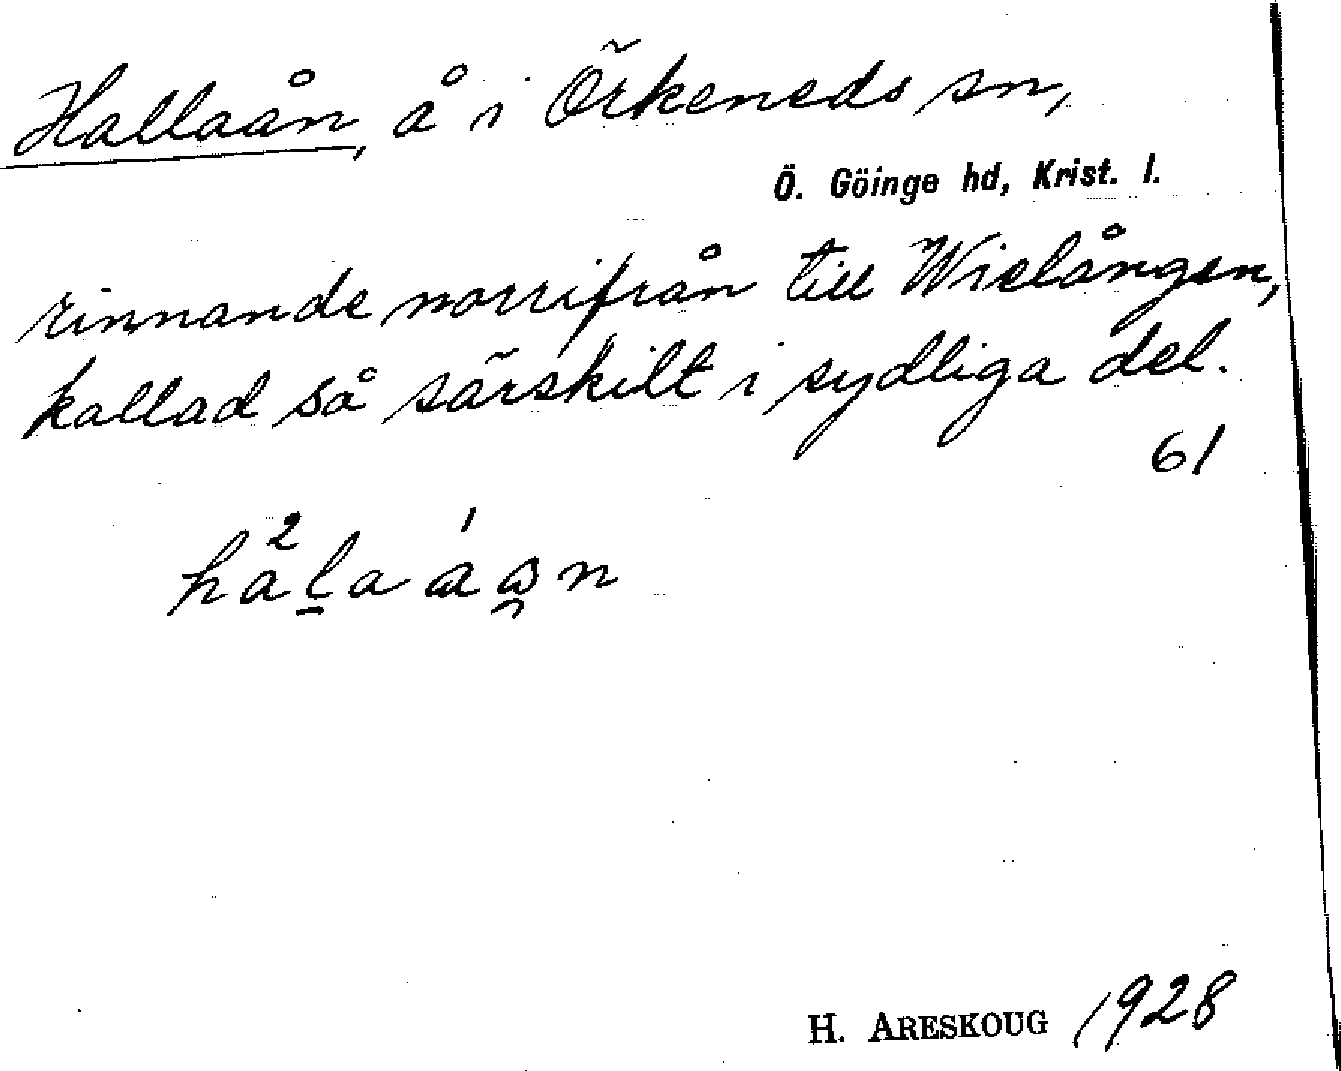 Hallaån, å i Örkeneds sn,
Ö. Göinge hd, Krist. l.
rinnande norrifrån till Wielången,
kallad så särskilt i sydliga del.
61
H. ARESKOUG 1928